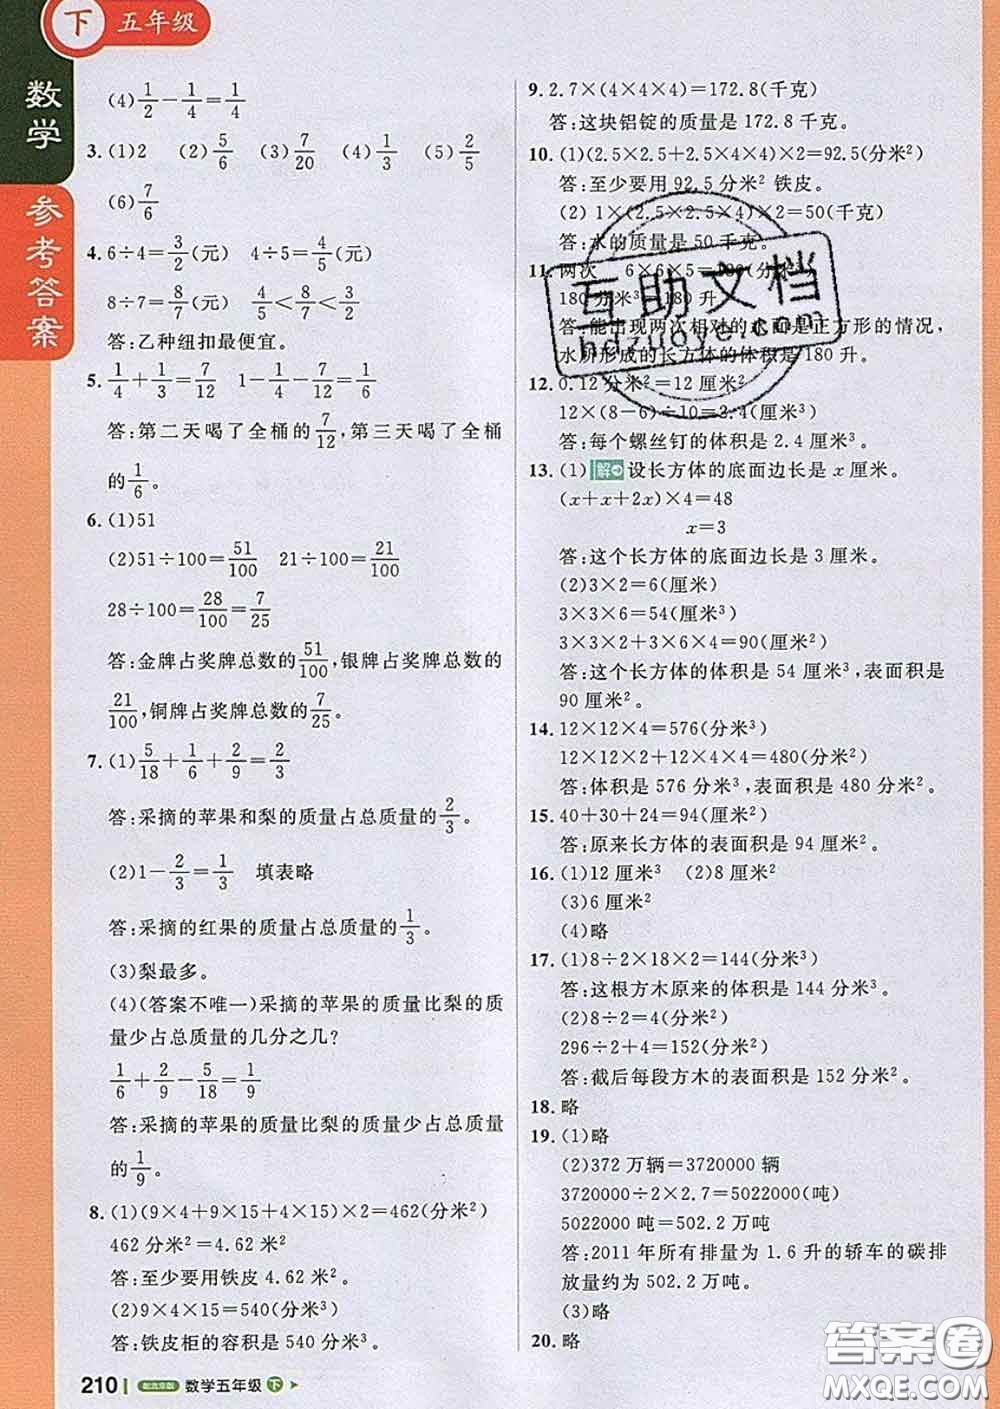 下 五年级
数学
参考答案
(4)1/2−1/4=1/4
3. (1)2 (2)5/6 (3)7/20 (4)1/3 (5)2/5
(6)7/6
4. 6÷4=3/2(元) 4÷5=4/5(元)
8÷7=8/7(元) 4/5<8/7<3/2
答:乙种纽扣最便宜。
5. 1/4+1/3=7/12 1−1/4−7/12=1/6
答:第二天喝了全桶的7/12,第三天喝了全桶
的1/6。
6. (1)51
(2)51÷100=51/100 21÷100=21/100
28÷100=28/100=7/25
答:金牌占奖牌总数的51/100,银牌占奖牌总数的
21/100,铜牌占奖牌总数的7/25。
7. (1)5/18+1/6+2/9=2/3
答:采摘的苹果和梨的质量占总质量的2/3。
(2)1−2/3=1/3 填表略
答:采摘的红果的质量占总质量的1/3。
(3)梨最多。
(4)(答案不唯一)采摘的苹果的质量比梨的质
量少占总质量的几分之几?
1/6+2/9−5/18=1/9
答:采摘的苹果的质量比梨的质量少占总质量
的1/9。
8. (1)(9×4+9×15+4×15)×2=462(分米²)
462分米²=4.62米²
答:至少要用铁皮4.62米²。
(2)9×4×15=540(分米³)
答:铁皮柜的容积是540分米³。
9. 2.7×(4×4×4)=172.8(千克)
答:这块铝锭的质量是172.8千克。
10. (1)(2.5×2.5+2.5×4×4)×2=92.5(分米²)
答:至少要用92.5分米²铁皮。
(2)1×(2.5×2.5×4×2)=50(千克)
答:水的质量是50千克。
11. 两次 6×6×5=180(分米³)
180分米³=180升
答:能出现两次相对的水面是正方形的情况,
水所形成的长方体的体积是180升。
12. 0.12分米²=12厘米²
12×(8−6)÷10=2.4(厘米³)
答:每个螺丝钉的体积是2.4厘米³。
13. (1)解 设长方体的底面边长是x厘米。
(x+x+2x)×4=48
x=3
答:这个长方体的底面边长是3厘米。
(2)3×2=6(厘米)
3×3×6=54(厘米³)
3×3×2+3×6×4=90(厘米²)
答:这个长方体的体积是54厘米³,表面积是
90厘米²。
14. 12×12×4=576(分米³)
12×12×2+12×4×4=480(分米²)
答:体积是576分米³,表面积是480分米²。
15. 40+30+24=94(厘米²)
答:原来长方体的表面积是94厘米²。
16. (1)12厘米³ (2)8厘米²
(3)6厘米²
(4)略
17. (1)8÷2×18×2=144(分米³)
答:这根方木原来的体积是144分米³。
(2)8÷2=4(分米²)
296÷2+4=152(分米²)
答:截后每段方木的表面积是152分米²。
18. 略
19. (1)略
(2)372万辆=3720000辆
3720000÷2×2.7=5022000(吨)
5022000吨=502.2万吨
答:2011年所有排量为1.6升的轿车的碳排
放量约为502.2万吨。
(3)略
20. 略
互助文档
hdzuoye.com
210 配北京版 数学五年级 下
答案圈
MXQE.COM